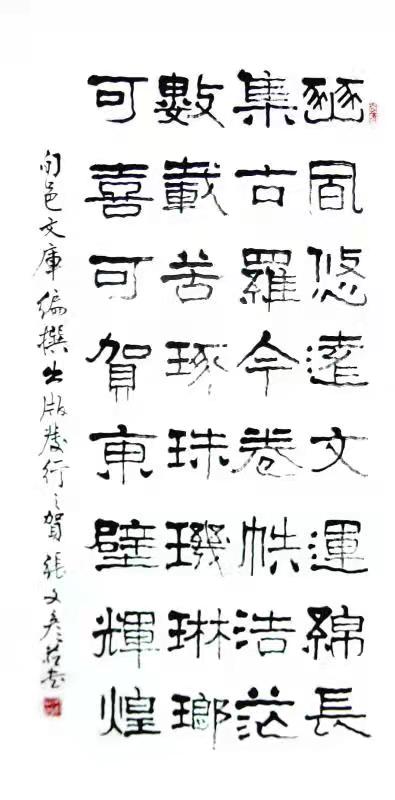 豳風悠遠文運綿長
集古羅今卷帙浩茫
數載苦琢珠璣琳瑯
可喜可賀東壁輝煌
旬邑文庫編撰出版發行之賀 張文彥書